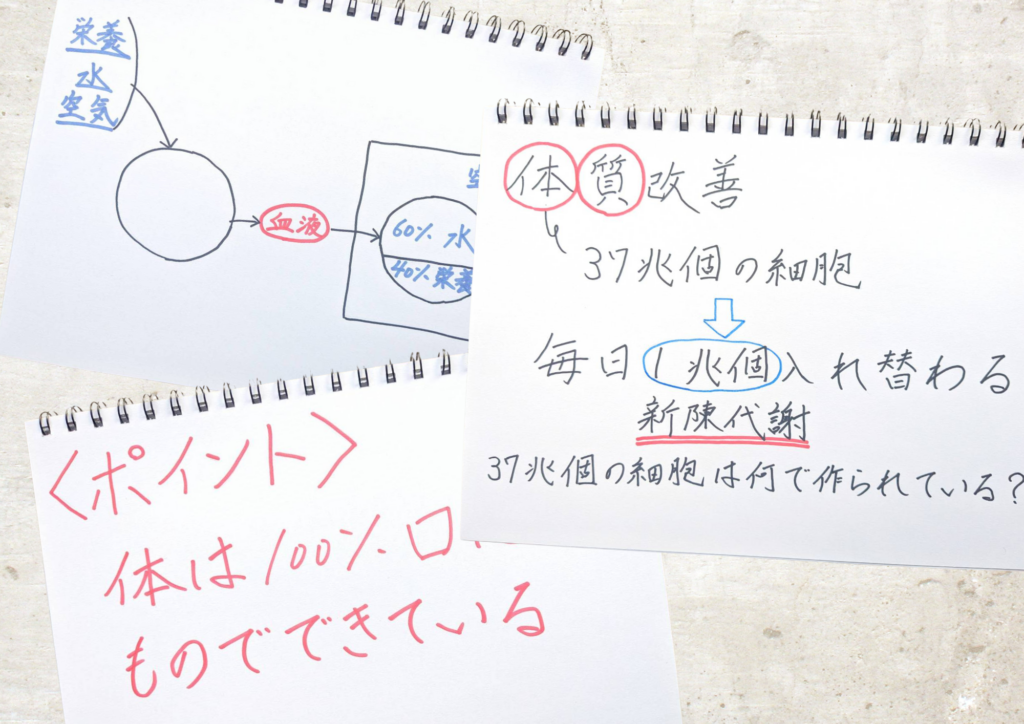 栄養
水
空気
血液
60% 水
40% 栄養
体質改善
37兆個の細胞
毎日1兆個入れ替わる
新陳代謝
37兆個の細胞は何で作られている?
<ポイント>
体は100% 口
ものでできている